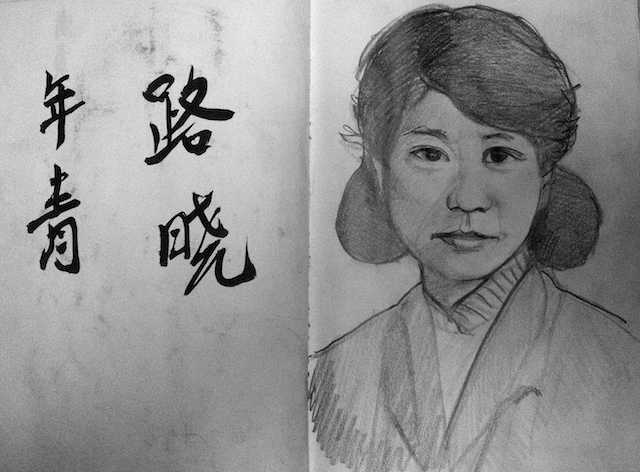 路晓
年青